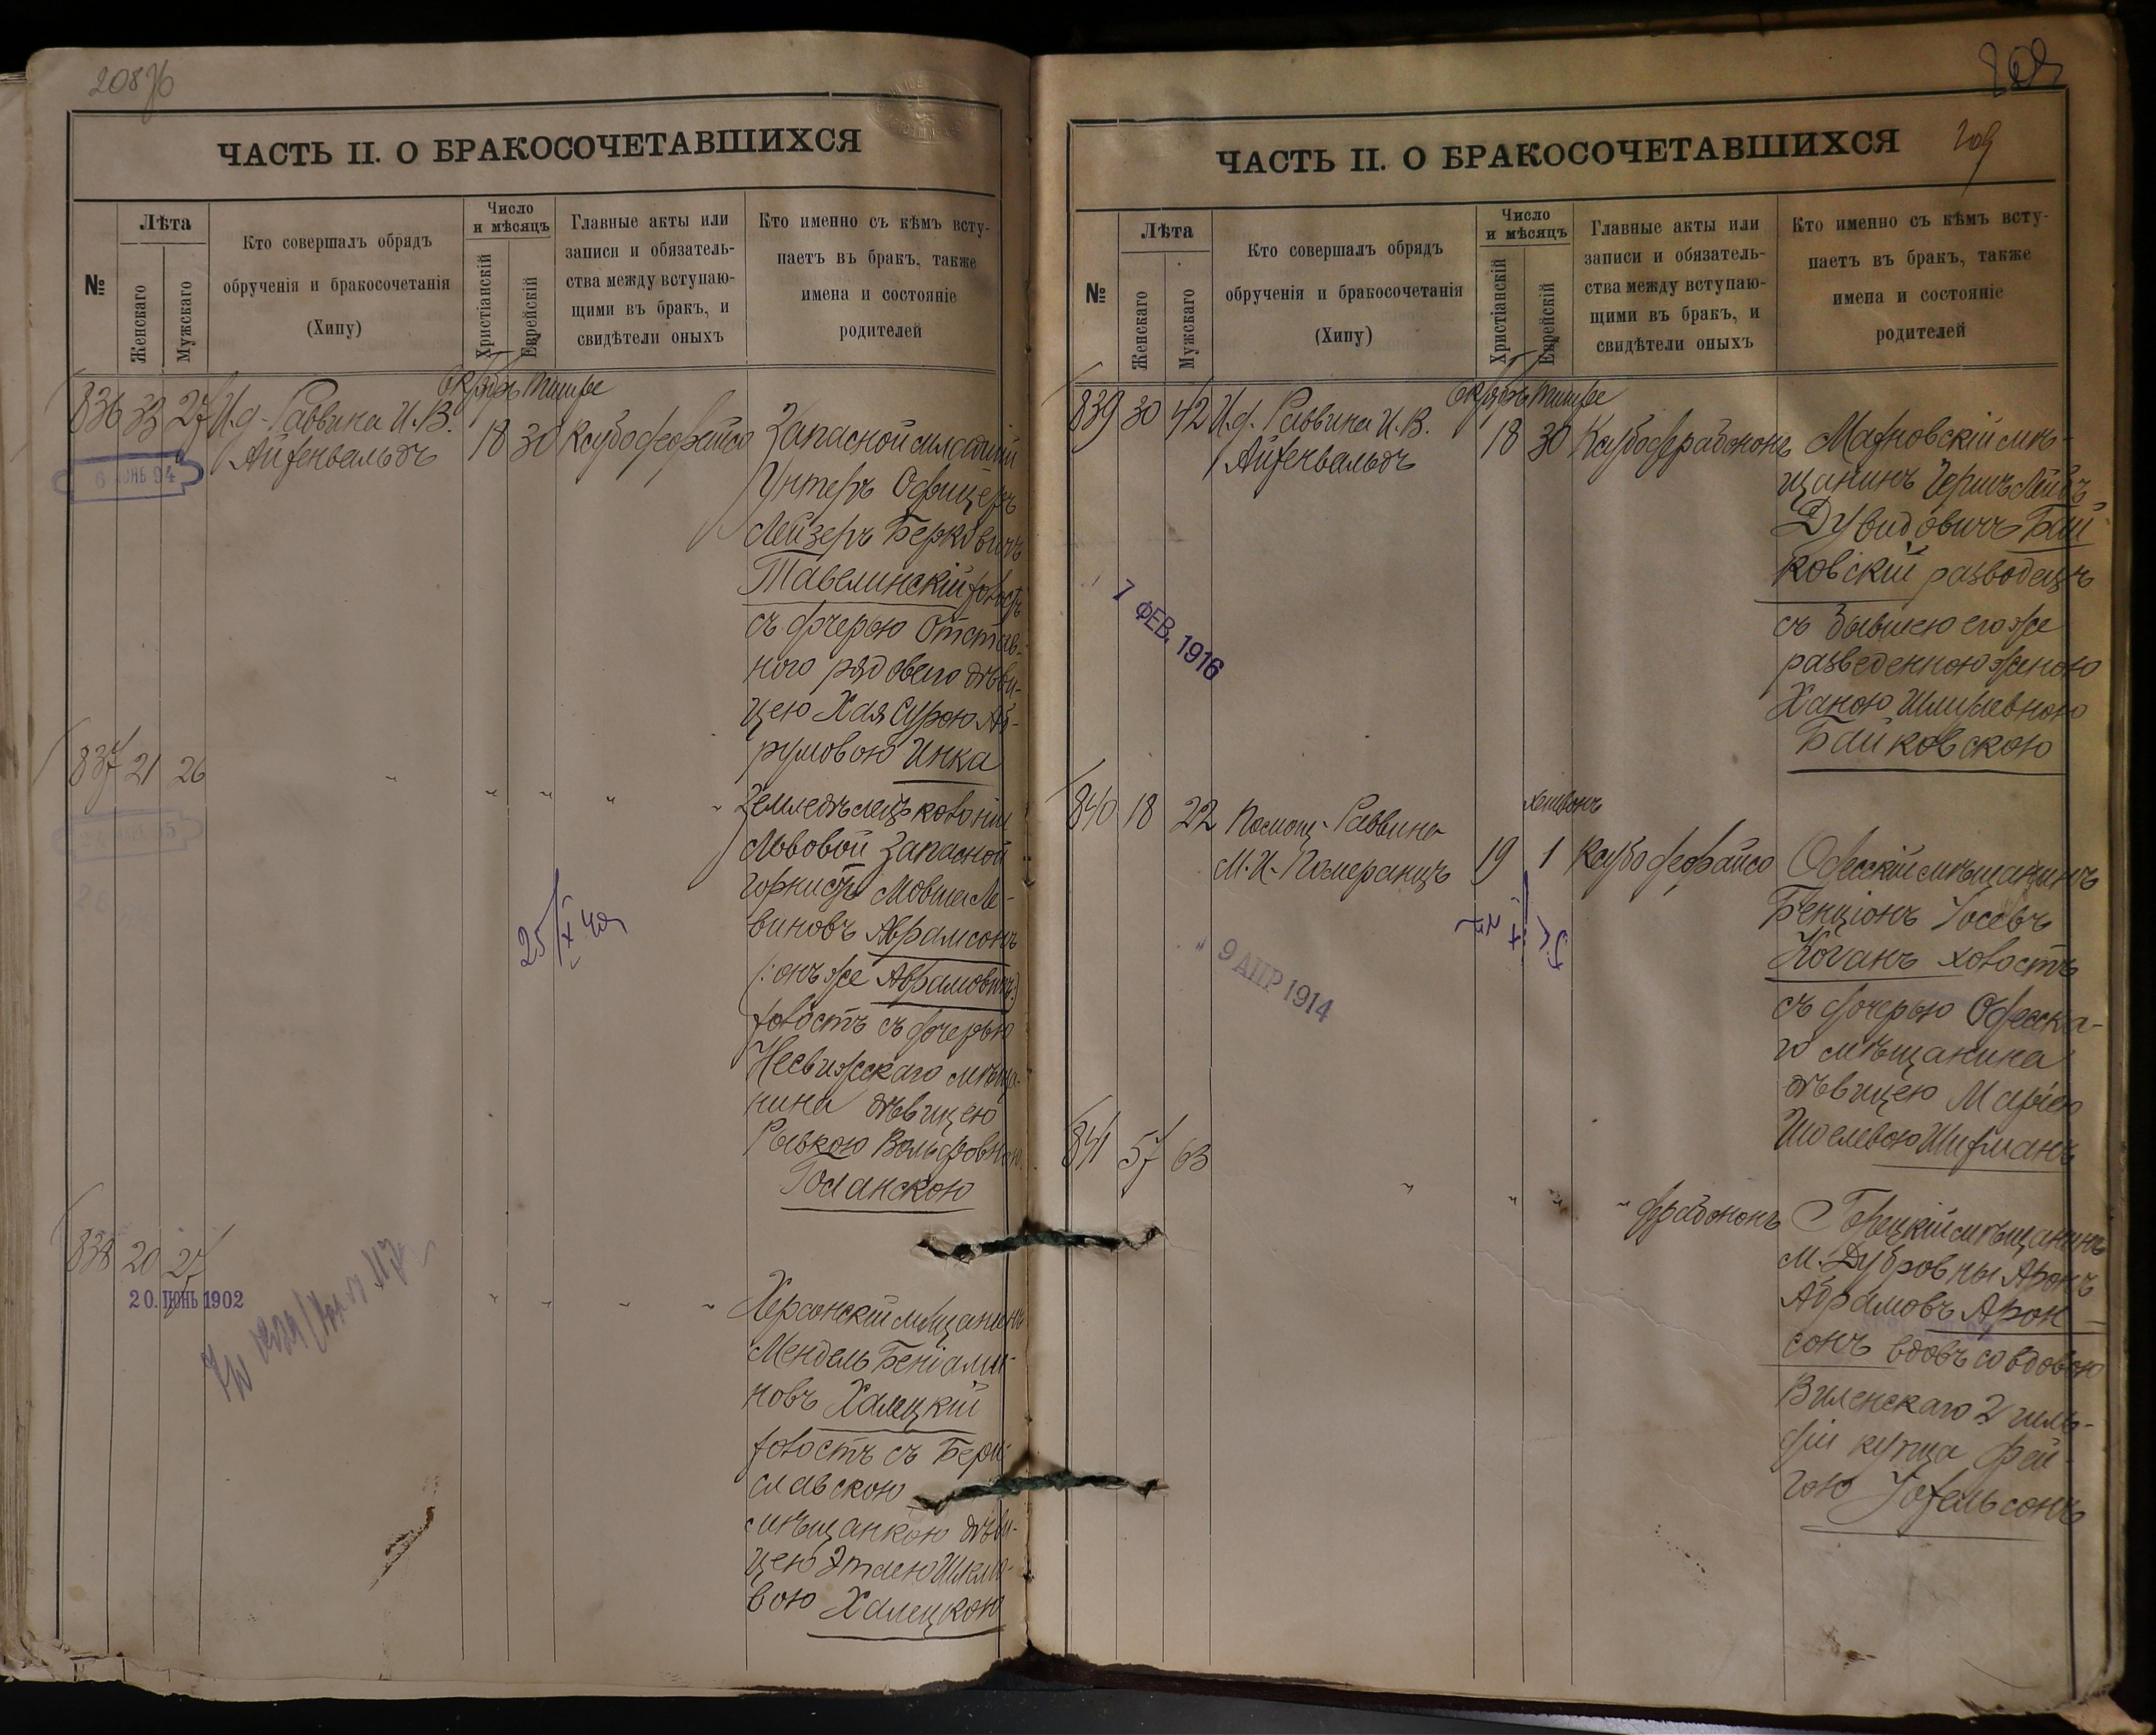 208об
ЧАСТЬ II. О БРАКОСОЧЕТАВШИХСЯ
№
Лѣта
Женскаго
Мужскаго
Кто совершалъ обрядъ
обрученія и бракосочетанія
(Хипу)
Число
и мѣсяцъ
Христіанскій
Еврейскій
Главные акты или
записи и обязатель-
ства между вступаю-
щими въ бракъ, и
свидѣтели оныхъ
Кто именно съ кѣмъ всту-
паетъ въ бракъ, также
имена и состояніе
родителей
836 33 27 И.д. Раввина И.В.
Айзенвальдъ
Тишре
18 30
Запасной младшій
Унтеръ Офицеръ
Лейзеръ Берковичъ
Тавлинскій холостъ
съ дочерью Отстав-
ного рядового дѣви-
цею Хая Сурою Аб-
румовою Инка
837 21 26 " " " " "
Земледѣлецъ колоніи
Львовой Запасной
горнистъ Мовша Ле-
виновъ Абрамсонъ
(:онъ же Абрамовичъ:)
холостъ съ дочерью
Несвижскаго мѣща-
нина дѣвицею
Рывкою Вольфовною
Голанскою
25/X 40
838 20 27 " " " "
20. ІЮНЬ 1902
Херсонскій мѣщанинъ
Мендель Беніами-
новъ Халецкій
холостъ съ Бери-
славскою
мѣщанкою дѣви-
цею Этлею Шлемо-
вою Халецкою
209
ЧАСТЬ II. О БРАКОСОЧЕТАВШИХСЯ
№
Лѣта
Женскаго
Мужскаго
Кто совершалъ обрядъ
обрученія и бракосочетанія
(Хипу)
Число
и мѣсяцъ
Христіанскій
Еврейскій
Главные акты или
записи и обязатель-
ства между вступаю-
щими въ бракъ, и
свидѣтели оныхъ
Кто именно съ кѣмъ всту-
паетъ въ бракъ, также
имена и состояніе
родителей
839 30 42 И.д. Раввина И.В.
Айзенвальдъ
Тишре
18 30
Махновскій мѣ-
щанинъ Гершъ Лейбъ
Дувидовичъ Бай-
ковскій разводецъ
съ бывшею его же
разведенною женою
Ханою Шлиомевною
Байковскою
7 ФЕВ. 1916
840 18 22 Помощ. Раввина
М.И. Померанцъ
хешвонъ
19 1
Одесскій мѣщанинъ
Бенціонъ Іосевъ
Коганъ холостъ
съ дочерью Одесска-
го мѣщанина
дѣвицею Маріею
Шоелевою Шифманъ
9 АПР 1914
841 57 63 " " " "
Горецкій мѣщанинъ
м. Дубровны Аронъ
Абрамовъ Арон-
сонъ вдовъ со вдовою
Виленскаго 2 гиль-
діи купца Фей-
гою Іохельсонъ